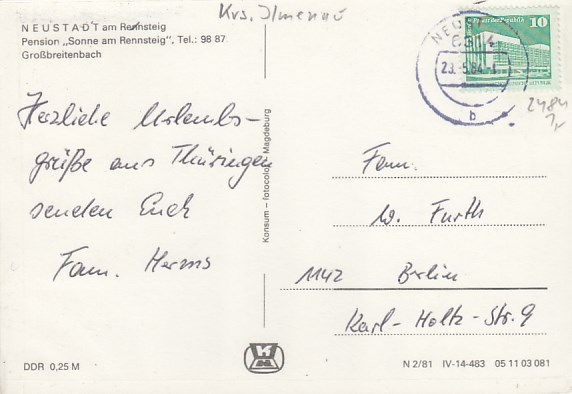 Krs. Ilmenau
NEUSTADT am Rennsteig
Pension „Sonne am Rennsteig“, Tel.: 98 87
Großbreitenbach
6314
23.-5.84-
b
10
2484
Herzliche Urlaubs-
grüße aus Thüringen
senden Euch
Fam. Herms
Konsum – fotocolor Magdeburg
Fam.
W. Furth
1142 Berlin
Karl-Holtz-Str. 9
DDR 0,25 M
N 2/81 IV-14-483 05 11 03 081